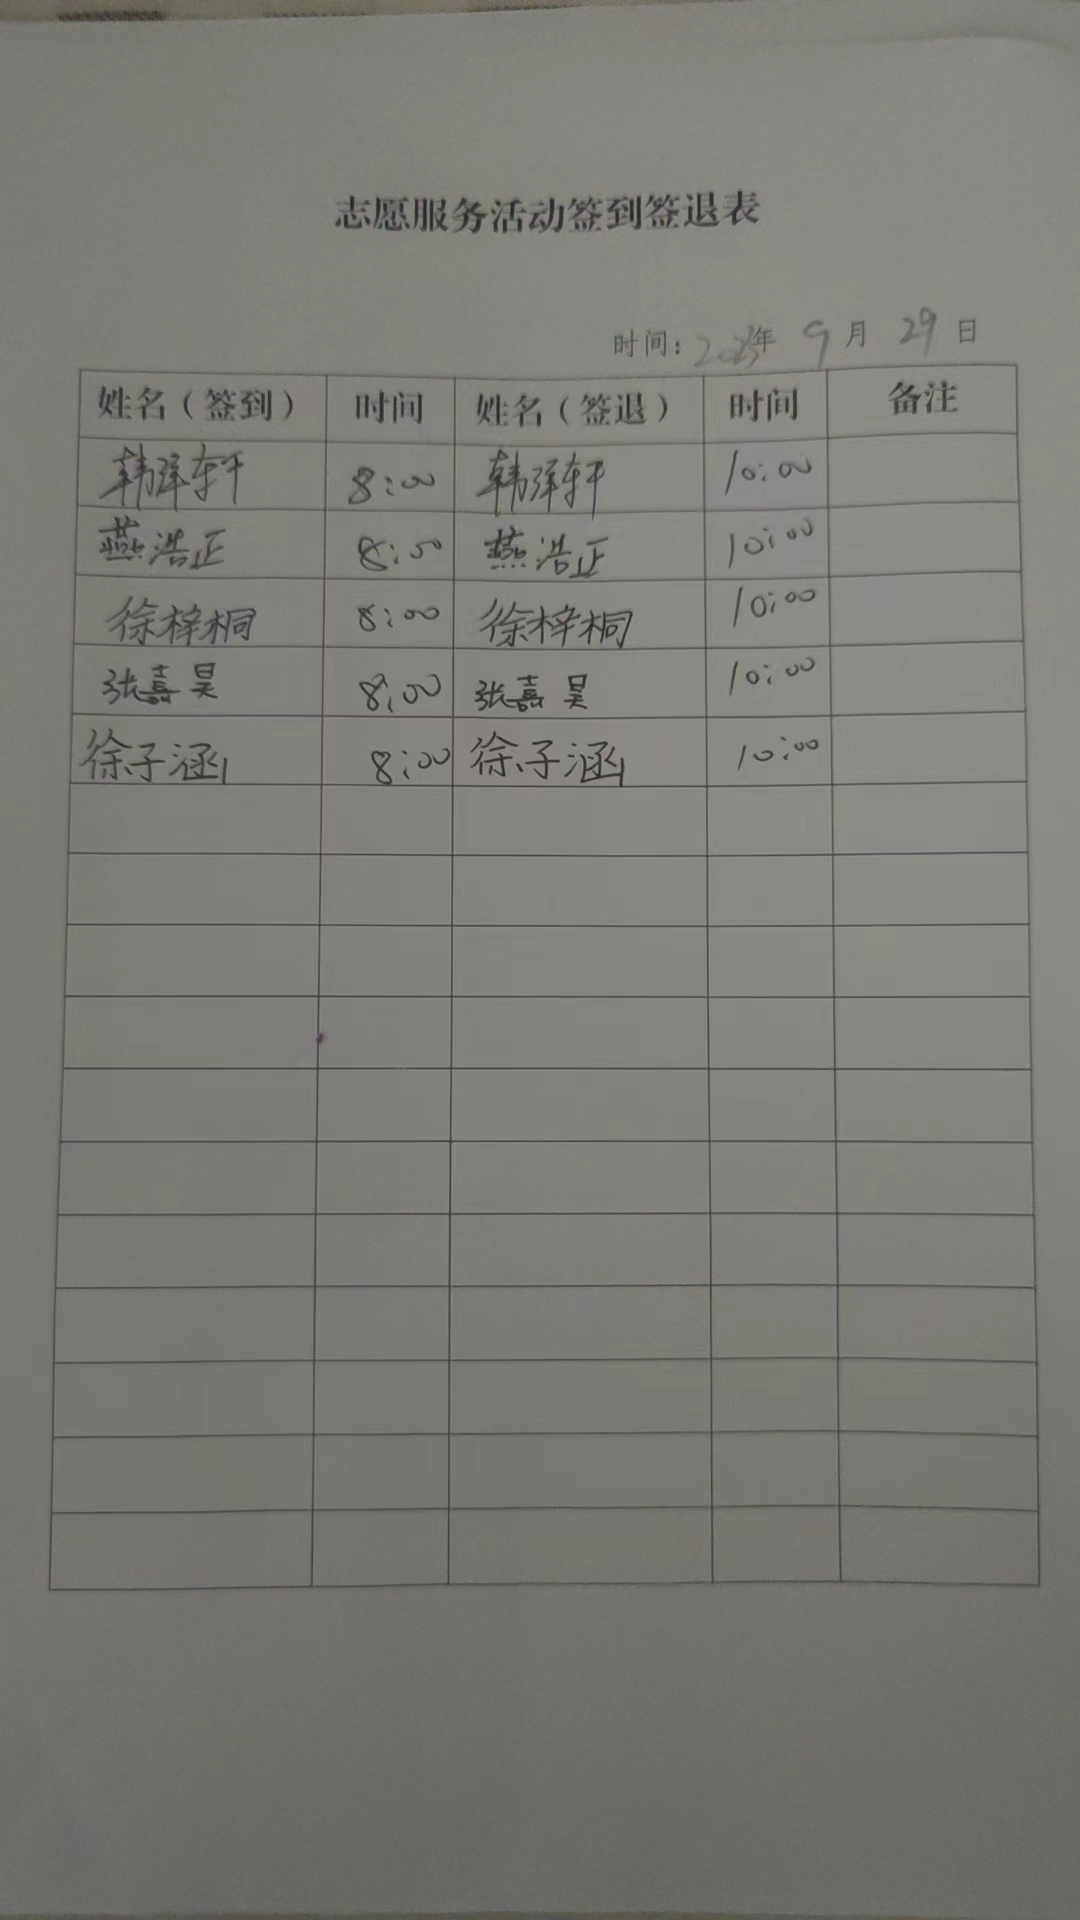 志愿服务活动签到签退表
时间：2023年 9月 29日
姓名（签到） 时间 姓名（签退） 时间 备注
韩泽轩 8:00 韩泽轩 10:00
燕浩正 8:00 燕浩正 10:00
徐梓桐 8:00 徐梓桐 10:00
张嘉昊 8:00 张嘉昊 10:00
徐子涵 8:00 徐子涵 10:00